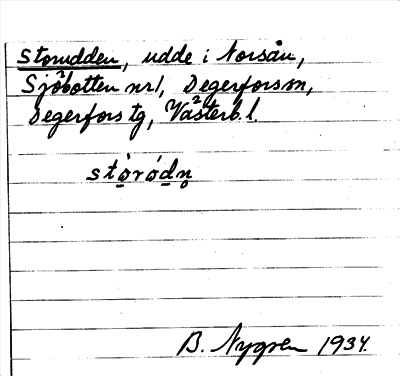 Storudden, udde i Norsån,
Sjöbotten nr 1, Degerfors sn,
Degerfors tg, Västerb. l.
stòródn̥
B. Nygren 1934.